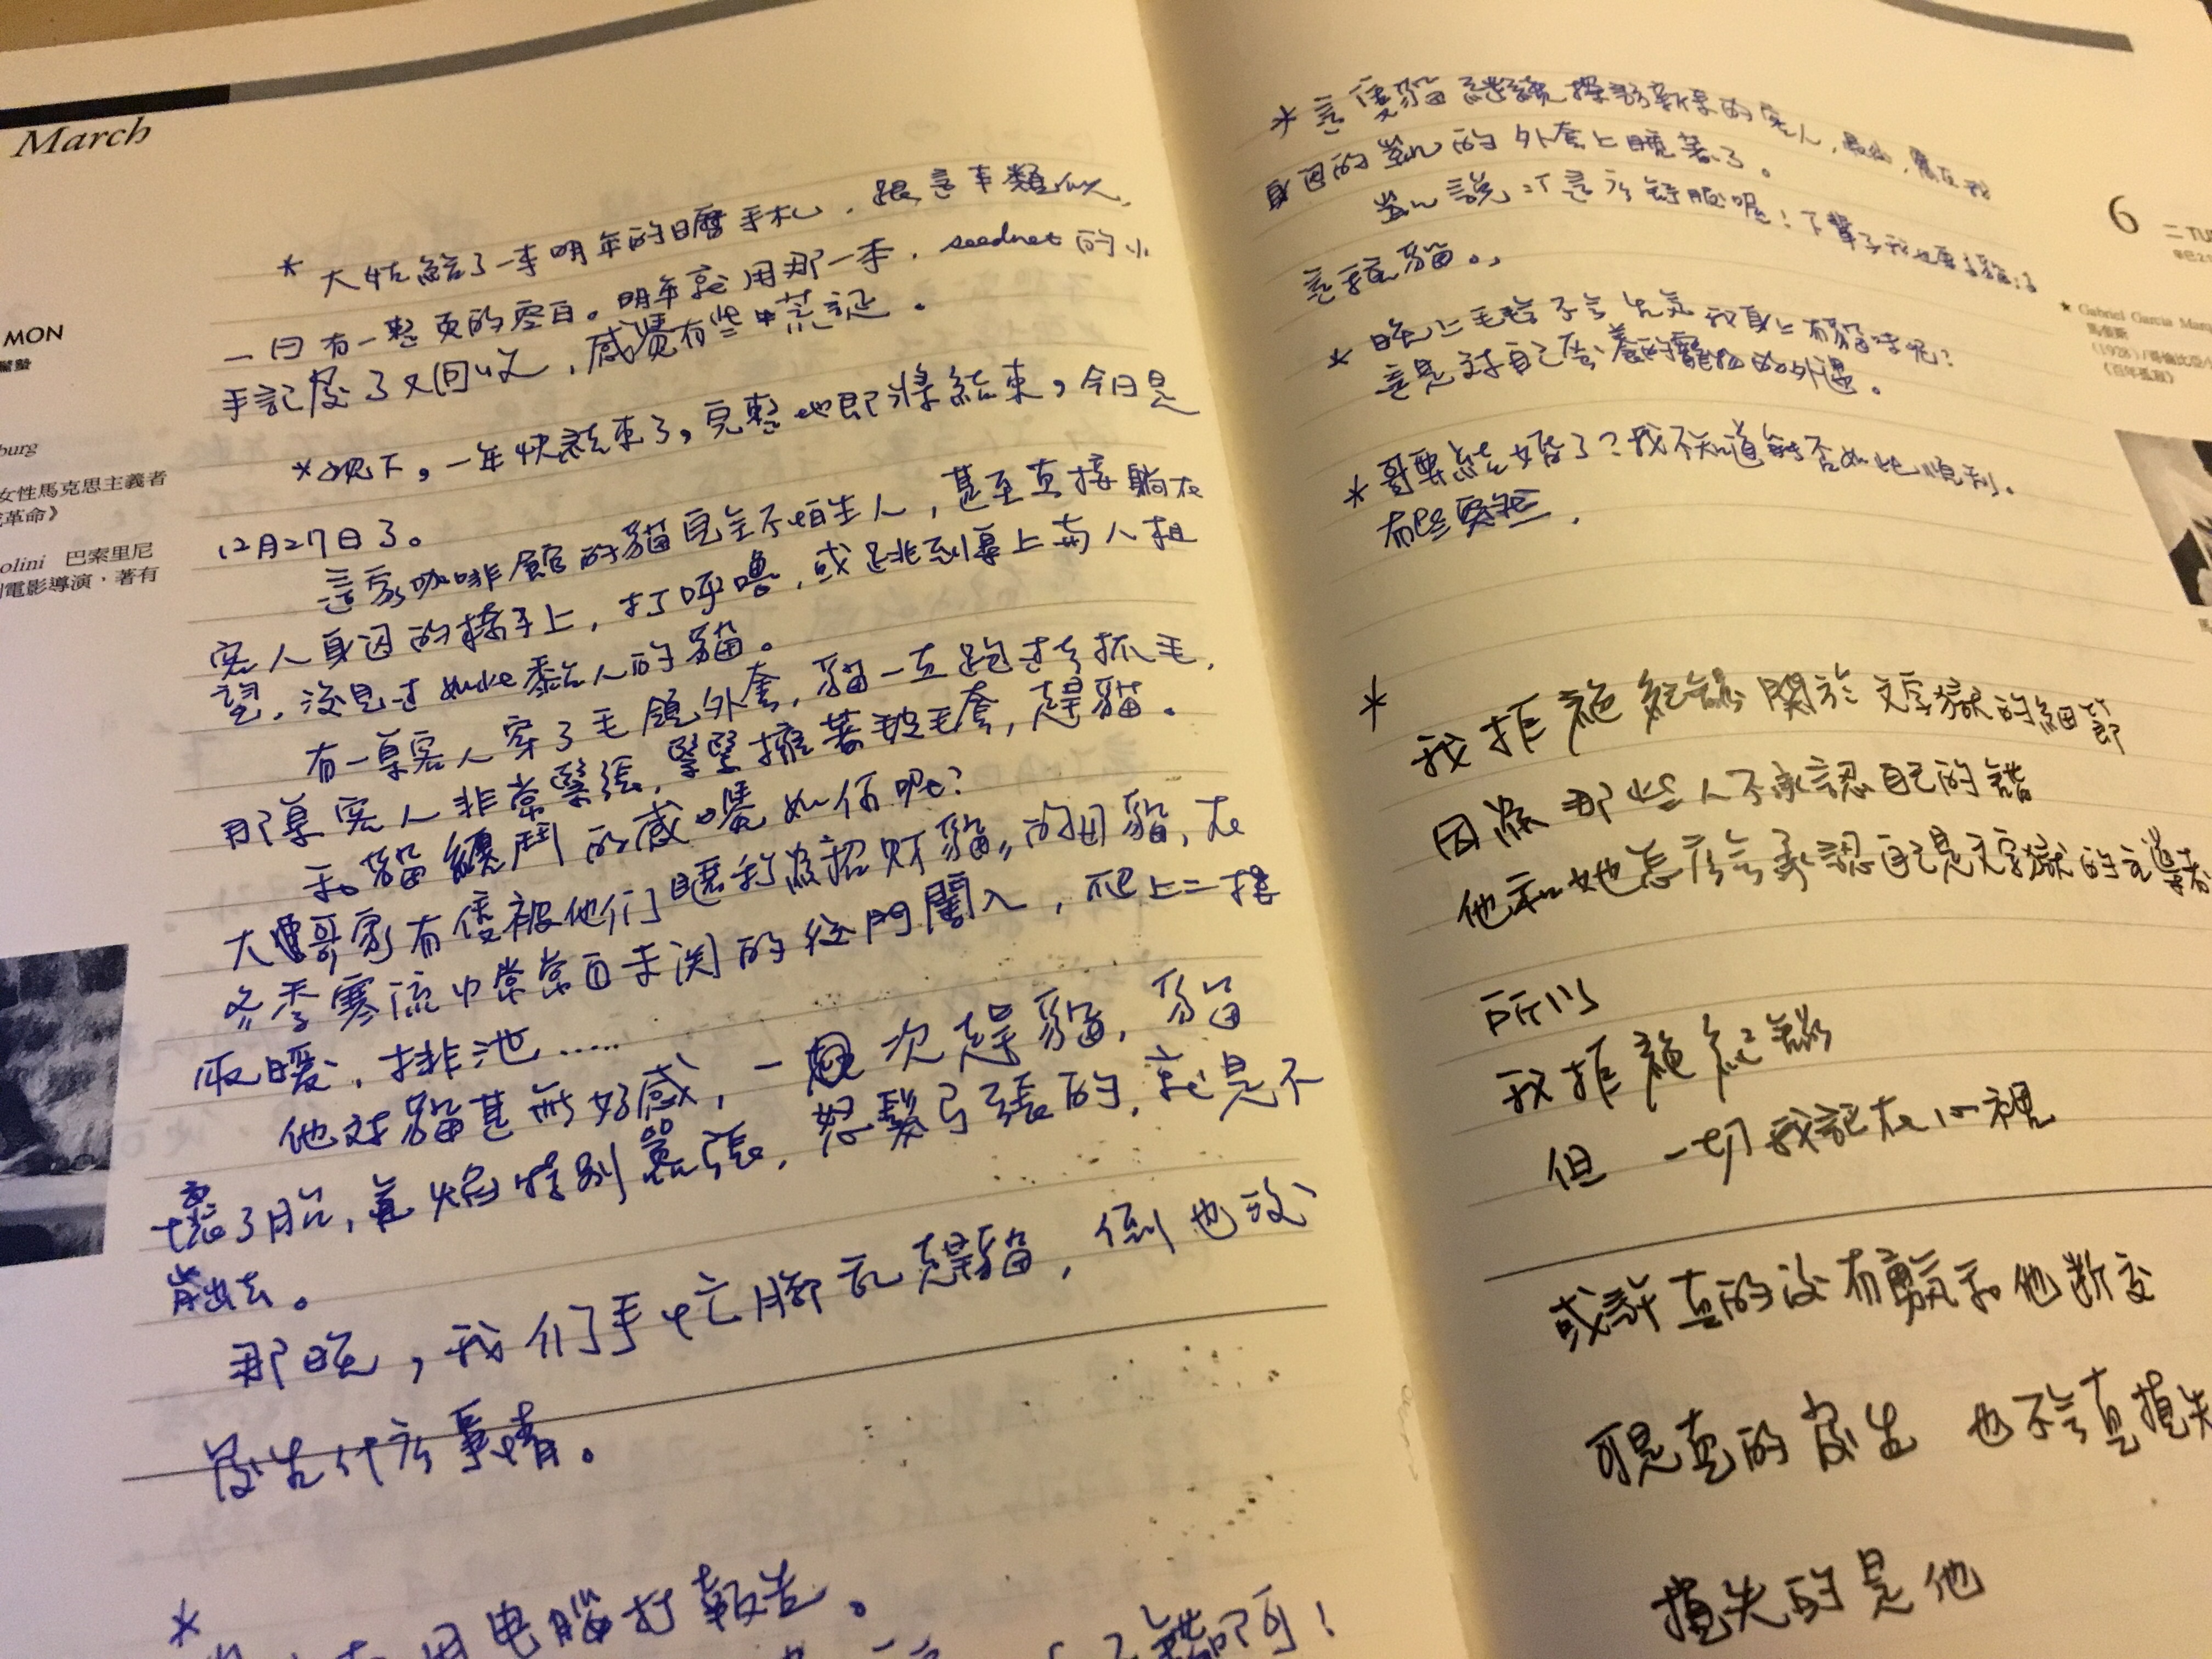 March
MON
驚蟄
burg
女性馬克思主義者
革命》
olini 巴索里尼
電影導演，著有
* 大姑給了一本明年的日曆手札，跟這本類似，
一日有一整頁的空白。明年就用那一本，seednet的小
手記發了又回收，感覺有些荒誕。
*現下，一年快結束了，完整地即將結束，今日是
12月27日了。
這家咖啡館的貓完全不怕生人，甚至直接躺在
客人身邊的椅子上，打呼嚕，或跳到桌上與人相
望，沒見过如此黏人的貓。
有一桌客人穿了毛領外套，貓一直跑过去抓毛，
那桌客人非常緊張，緊緊擁著披毛套，趕貓。
和貓纏鬥的感覺如何呢？
大哥家有隻被他们暱稱為招財貓的母貓，在
冬季寒流中常常自未関的後門闖入，爬上二樓
取暖，排泄……
他对貓甚無好感，一次趕貓，貓
懷了胎，氣焰特別囂張，怒髮弓張的，就是不
肯出去。
那晚，我们手忙腳乱趕貓，倒也沒
發生什広事情。
*
用电腦打報告。
* 這隻貓繼續探訪新來的客人，最後，窩在我
身邊的的外套上睡著了。
說：不是広舒服呢！下輩子我也要當貓
這種貓。
* 晚上毛毛会不会生気我身上有貓味呢？
這是对自己豢養的寵物的外遇。
* 哥要結婚了？我不知道能否如此順利。
有些突然，
6
二 TU
★ Gabriel Garcia Marq
馬奎斯
(1928)/哥倫比亞小
《百年孤寂》
*
我拒絕紀錄關於文字獄的細節
因為那些人不承認自己的錯
他和她怎広会承認自己是文字獄的主導者
所以
我拒絕紀錄
但 一切我記在心裡
或許真的沒有勇気和他断交
可是真的發生 也不会真損失
損失的是他